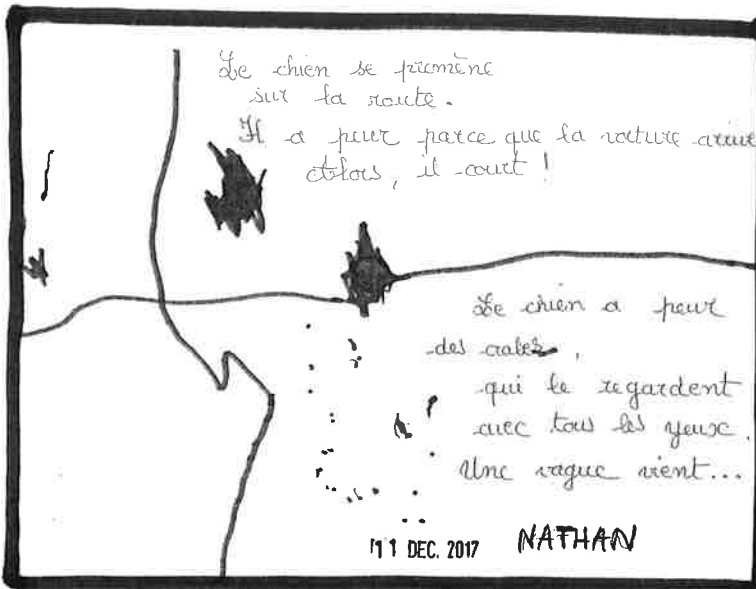 Le chien se promène
sur la route.
Il a peur parce que la voiture arrive
Alors, il court !
Le chien a peur
des crabes,
qui le regardent
avec tous les yeux.
Une vague vient...
11 DEC. 2017
NATHAN